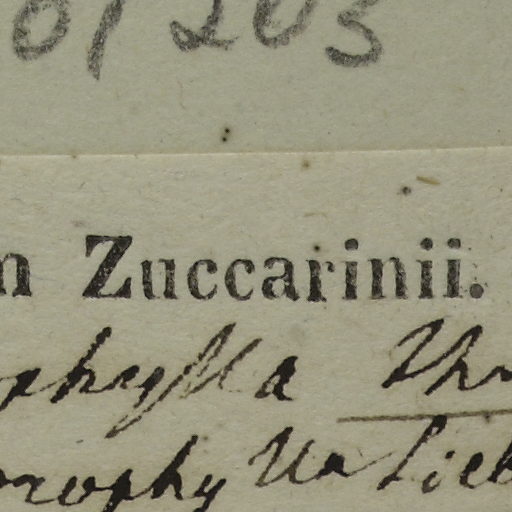 01203
n Zuccarinii.
phylla Thu
rophylla Lieb